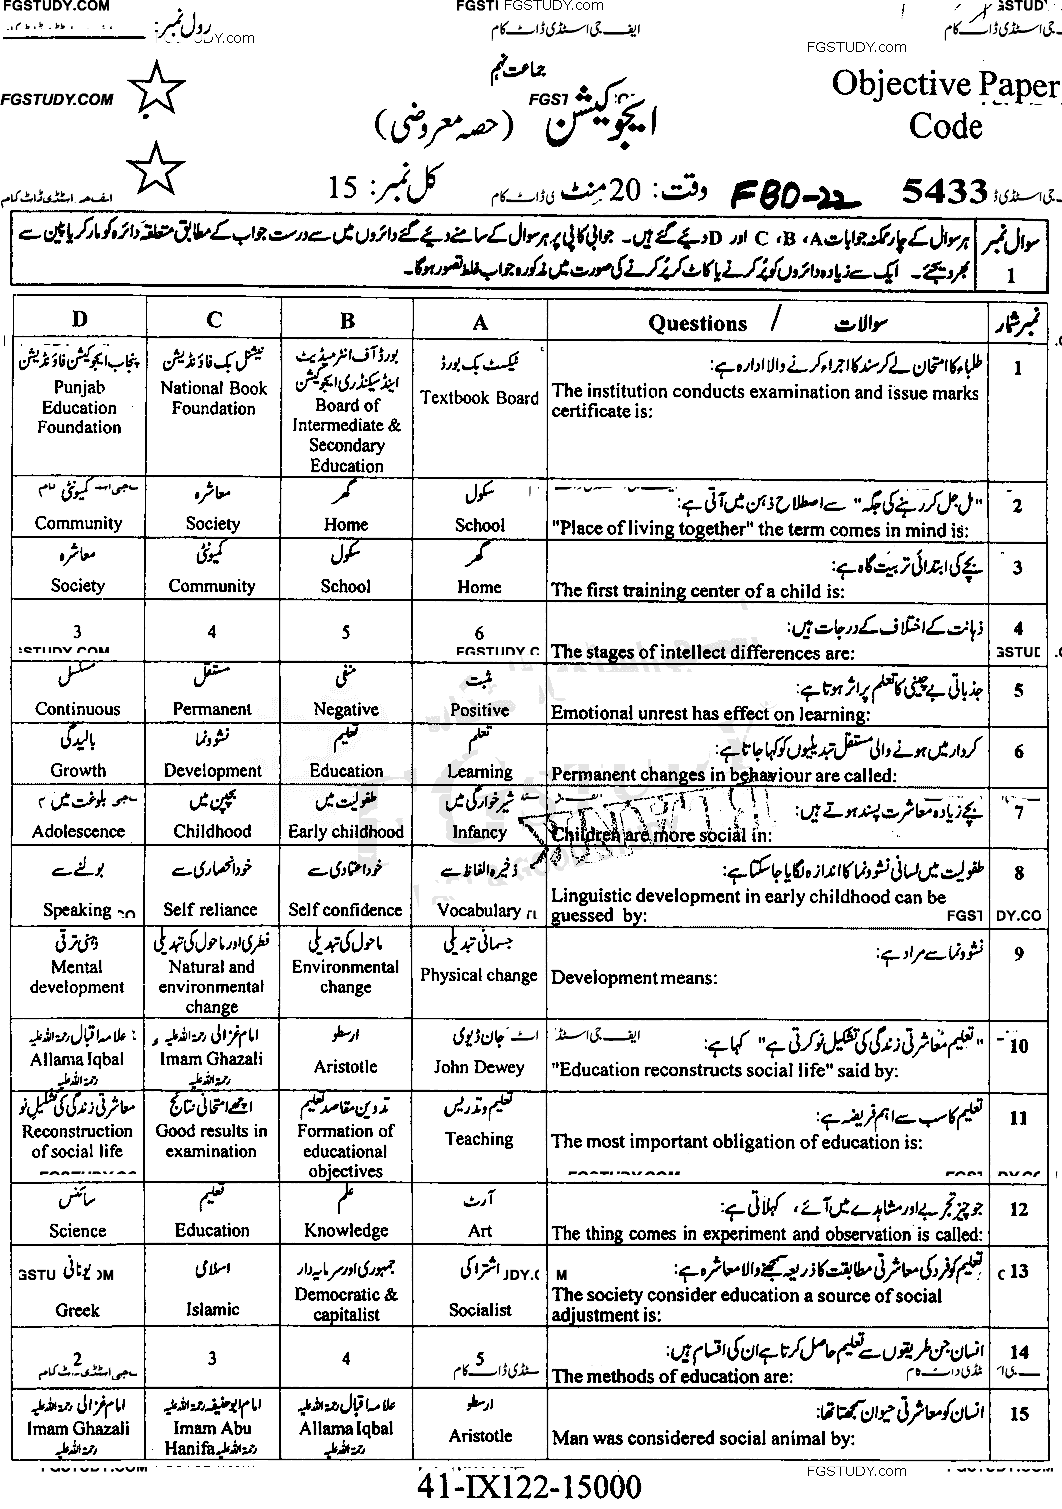 FGSTUDY.COM
رول نمبر:
ایف جی اسٹڈی ڈاٹ کام
FGSTUDY.com
جماعت نہم
FGSTUDY.COM
ایجوکیشن (حصہ معروضی)
Objective Paper
Code
5433
FBD-22
وقت: 20 منٹ
کل نمبر: 15
سوال نمبر 1
ہر سوال کے چار ممکنہ جوابات A، B، C اور D دیئے گئے ہیں۔ جوابی کاپی پر ہر سوال کے سامنے دیئے گئے دائروں میں سے درست جواب کے مطابق متعلقہ دائرہ کو مارکر یا پین سے
بھر دیجئے۔ ایک سے زیادہ دائروں کو پُر کرنے یا کاٹ کر پُر کرنے کی صورت میں مذکورہ جواب غلط تصور ہوگا۔
D C B A Questions / سوالات نمبر شمار
1 طلباء کا امتحان لے کر سند کا اجراء کرنے والا ادارہ ہے:
The institution conducts examination and issue marks
certificate is:
ٹیکسٹ بک بورڈ
Textbook Board
بورڈ آف انٹرمیڈیٹ
اینڈ سیکنڈری ایجوکیشن
Board of
Intermediate &
Secondary
Education
نیشنل بک فاؤنڈیشن
National Book
Foundation
پنجاب ایجوکیشن فاؤنڈیشن
Punjab
Education
Foundation
2 "مل جل کر رہنے کی جگہ" سے اصطلاح ذہن میں آتی ہے:
"Place of living together" the term comes in mind is:
سکول
School
گھر
Home
معاشرہ
Society
کمیونٹی
Community
3 بچے کی ابتدائی تربیت گاہ ہے:
The first training center of a child is:
گھر
Home
سکول
School
کمیونٹی
Community
معاشرہ
Society
4 ذہانت کے اختلاف کے درجات ہیں:
The stages of intellect differences are:
6
5
4
3
5 جذباتی بے چینی کا تعلم پر اثر ہوتا ہے:
Emotional unrest has effect on learning:
مثبت
Positive
منفی
Negative
مستقل
Permanent
مسلسل
Continuous
6 کردار میں ہونے والی مستقل تبدیلیوں کو کہا جاتا ہے:
Permanent changes in behaviour are called:
تعلم
Learning
تعلیم
Education
نشوونما
Development
بالیدگی
Growth
7 بچے زیادہ معاشرت پسند ہوتے ہیں:
Children are more social in:
شیر خوارگی میں
Infancy
طفولیت میں
Early childhood
بچپن میں
Childhood
بلوغت میں
Adolescence
8 طفولیت میں لسانی نشوونما کا اندازہ لگایا جا سکتا ہے:
Linguistic development in early childhood can be
guessed by:
ذخیرہ الفاظ سے
Vocabulary
خود اعتمادی سے
Self confidence
خود انحصاری سے
Self reliance
بولنے سے
Speaking
9 نشوونما سے مراد ہے:
Development means:
جسمانی تبدیلی
Physical change
ماحول کی تبدیلی
Environmental
change
فطری اور ماحول کی تبدیلی
Natural and
environmental
change
ذہنی ترقی
Mental
development
10 "تعلیم معاشرتی زندگی کی تشکیل نو کرتی ہے" کہا ہے:
"Education reconstructs social life" said by:
جان ڈیوی
John Dewey
ارسطو
Aristotle
امام غزالی رحمۃ اللہ علیہ
Imam Ghazali
رحمۃ اللہ علیہ
علامہ اقبال رحمۃ اللہ علیہ
Allama Iqbal
رحمۃ اللہ علیہ
11 تعلیم کا سب سے اہم فریضہ ہے:
The most important obligation of education is:
تعلیم و تدریس
Teaching
تدوین مقاصد تعلیم
Formation of
educational
objectives
اچھے امتحانی نتائج
Good results in
examination
معاشرتی زندگی کی تشکیل نو
Reconstruction
of social life
12 جو چیز تجربے اور مشاہدے میں آئے، کہلاتی ہے:
The thing comes in experiment and observation is called:
آرٹ
Art
علم
Knowledge
تعلیم
Education
سائنس
Science
13 تعلیم کو فرد کی معاشرتی مطابقت کا ذریعہ سمجھنے والا معاشرہ ہے:
The society consider education a source of social
adjustment is:
اشتراکی
Socialist
جمہوری اور سرمایہ دار
Democratic &
capitalist
اسلامی
Islamic
یونانی
Greek
14 انسان جن طریقوں سے تعلیم حاصل کرتا ہے ان کی اقسام ہیں:
The methods of education are:
5
4
3
2
15 انسان کو معاشرتی حیوان سمجھتا تھا:
Man was considered social animal by:
ارسطو
Aristotle
علامہ اقبال رحمۃ اللہ علیہ
Allama Iqbal
رحمۃ اللہ علیہ
امام ابو حنیفہ رحمۃ اللہ علیہ
Imam Abu
Hanifa رحمۃ اللہ علیہ
امام غزالی رحمۃ اللہ علیہ
Imam Ghazali
رحمۃ اللہ علیہ
FGSTUDY.com
41-IX122-15000